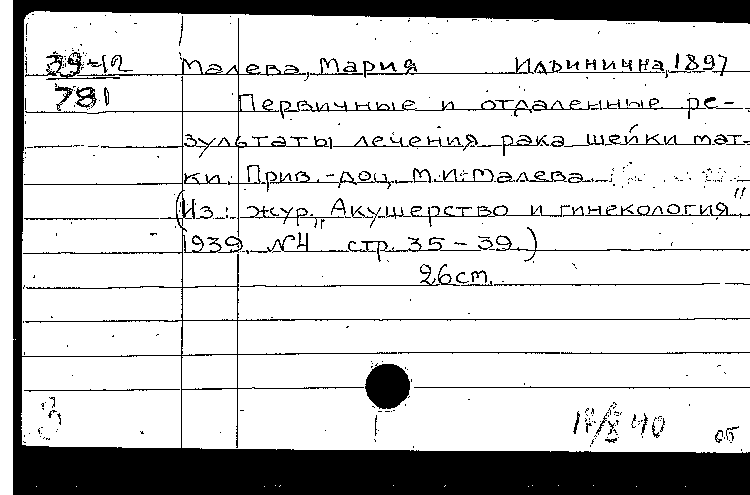 39-12 Малева, Мария Ильинична, 1897
781 Первичные и отдаленные ре-
зультаты лечения рака шейки мат-
ки. Прив.-доц. М.И. Малева.
(Из: жур. „Акушерство и гинекология",
1939. №4 стр. 35-39.)
26ст.
3
17/X 40 об